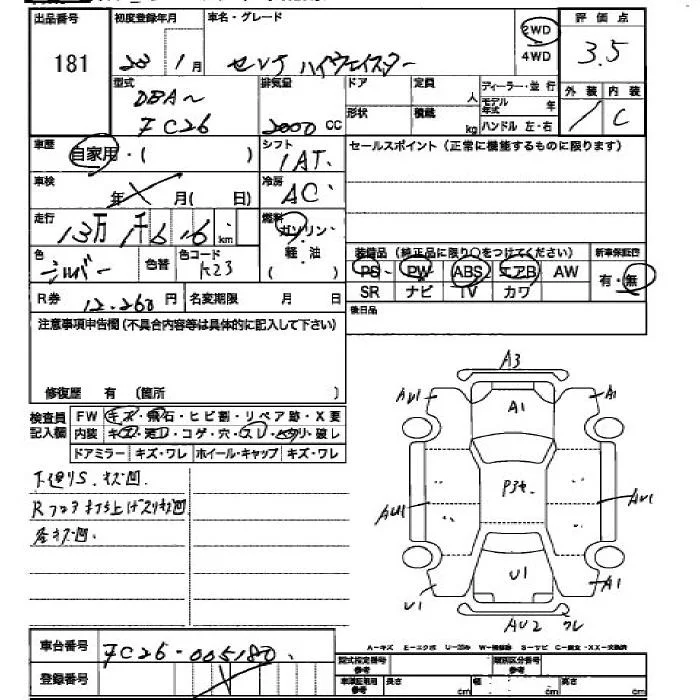 出品番号 初度登録年月 車名・グレード 2WD 評価点
181 23 1月 セレナ ハイウェイスター 4WD 3.5
型式 排気量 ドア 定員 人 ディーラー・並行 外装 内装
DBA〜 モデル年式 年
FC26 2000cc 形状 積載 kg ハンドル 左・右 / C
車歴 シフト セールスポイント(正常に機能するものに限ります)
自家用・( ) 1AT
車検 年 月( 日) 冷房 AC
走行 13万 千616 km 燃料 ガソリン・
軽油
( )
色 シルバー 色替 色コード K23 装備品(純正品に限り○をつけてください) 新車保証書
PS PW ABS エアB AW 有・無
R券 12,260円 名変期限 月 日 SR ナビ TV カワ
注意事項申告欄(不具合内容等は具体的に記入して下さい) 後日品
修復歴 有 (箇所 )
検査員 FW キズ・飛石・ヒビ割・リペア跡・X要
記入欄 内装 キズ・汚レ・コゲ・穴・スレ・ヘタリ・破レ
ドアミラー キズ・ワレ ホイール・キャップ キズ・ワレ
下廻りS.キズ凹
Rフロア打上げスリキズ凹
座キズ凹.
A3
AU1 A1 A1
P3t.
AU1 AU1
U1
U1 A1
AU2 ワレ
A-キズ E-エクボ U-凹み W-補修跡 S-サビ C-腐食 ×・××-交換済
車台番号 FC26-005180 型式指定番号 参考 類別区分番号 参考
登録番号 車庫証明用 参考 長さ cm 幅 cm 高さ cm